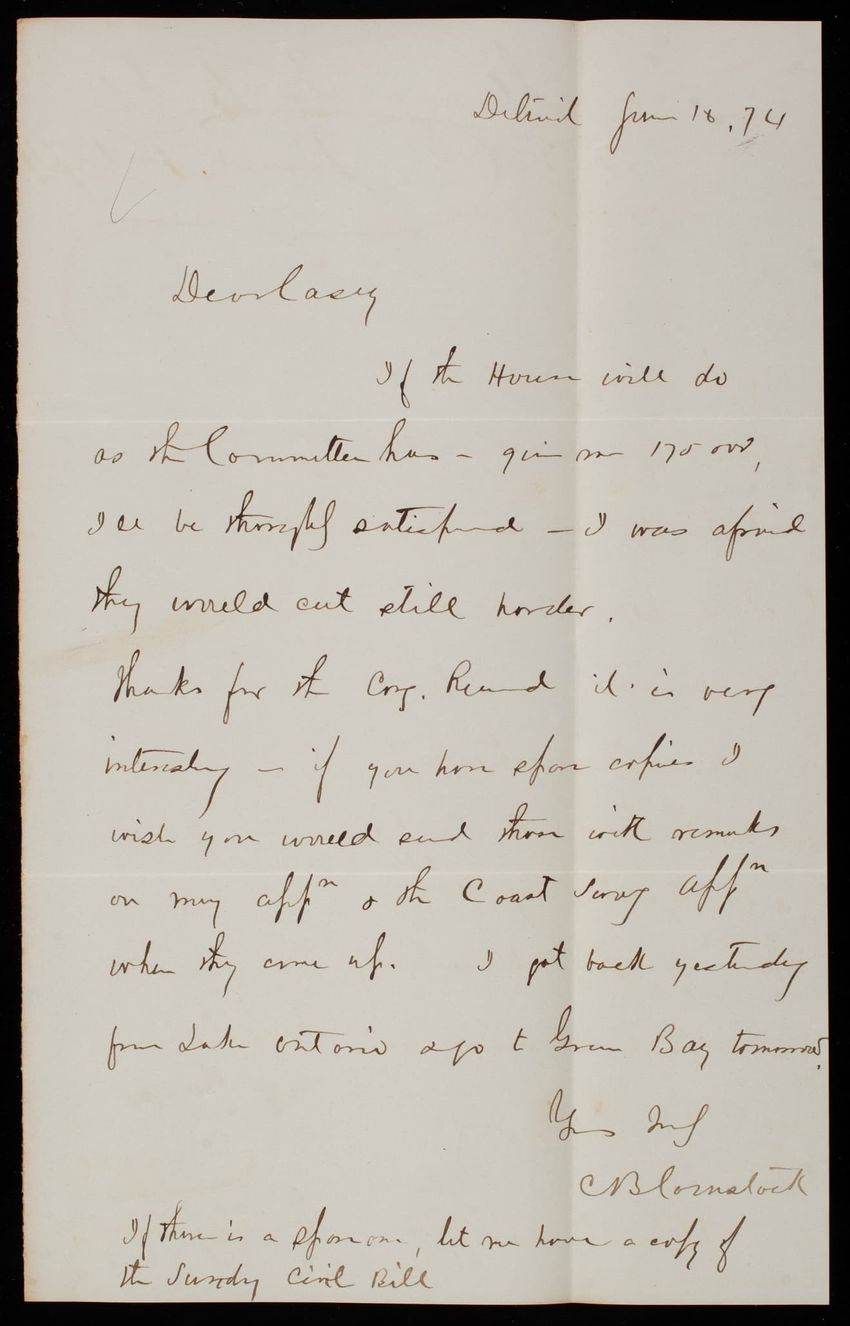 Detroit June 18, 74
Dear Casey
If the House will do
as the Committee has - give me 175 000,
I'll be thoroughly satisfied - I was afraid
they would cut still harder.
Thanks for the Cong. Record it is very
interesting - if you have spare copies I
wish you would send those with remarks
on my appn & the Coast Survey Appn
when they come up. I got back yesterday
from Lake Ontario & go to Green Bay tomorrow.
Yrs Truly
CB Comstock
If there is a spare one, let me have a copy of
the Sundry Civil Bill